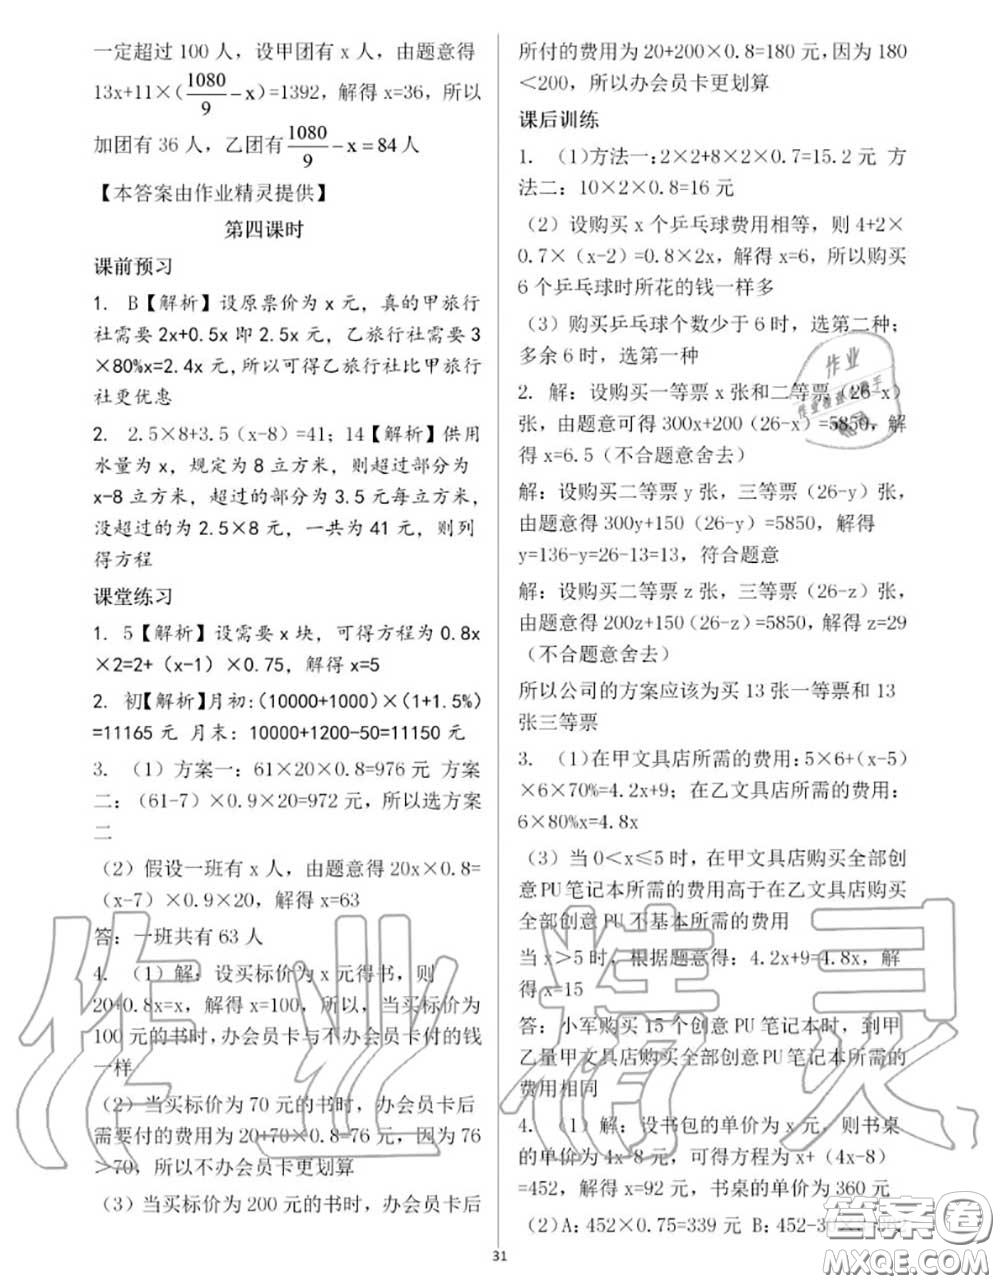 一定超过 100 人，设甲团有 x 人，由题意得
13x+11×(1080/9−x)=1392，解得 x=36，所以
加团有 36 人，乙团有1080/9−x=84人
【本答案由作业精灵提供】
第四课时
课前预习
1. B【解析】设原票价为 x 元，真的甲旅行
社需要 2x+0.5x 即 2.5x 元，乙旅行社需要 3
×80%x=2.4x 元,所以可得乙旅行社比甲旅行
社更优惠
2. 2.5×8+3.5（x-8）=41；14【解析】供用
水量为 x，规定为 8 立方米，则超过部分为
x-8 立方米，超过的部分为 3.5 元每立方米，
没超过的为 2.5×8 元，一共为 41 元，则列
得方程
课堂练习
1. 5【解析】设需要 x 块，可得方程为 0.8x
×2=2+（x-1）×0.75，解得 x=5
2. 初【解析】月初:(10000+1000)×(1+1.5%)
=11165 元 月末：10000+1200-50=11150 元
3. （1）方案一：61×20×0.8=976 元 方案
二：(61-7）×0.9×20=972 元，所以选方案
二
（2）假设一班有 x 人，由题意得 20x×0.8=
（x-7）×0.9×20，解得 x=63
答：一班共有 63 人
4. （1）解：设买标价为 x 元得书，则
20+0.8x=x，解得 x=100，所以，当买标价为
100 元的书时,办会员卡与不办会员卡付的钱
一样
（2）当买标价为 70 元的书时，办会员卡后
需要付的费用为 20+70×0.8=76 元，因为 76
＞70，所以不办会员卡更划算
（3）当买标价为 200 元的书时，办会员卡后
所付的费用为 20+200×0.8=180 元,因为 180
＜200，所以办会员卡更划算
课后训练
1. （1)方法一:2×2+8×2×0.7=15.2 元 方
法二：10×2×0.8=16 元
（2）设购买 x 个乒乓球费用相等，则 4+2×
0.7×（x-2）=0.8×2x，解得 x=6，所以购买
6 个乒乓球时所花的钱一样多
（3）购买乒乓球个数少于 6 时，选第二种；
多余 6 时，选第一种
2. 解：设购买一等票 x 张和二等票（26-x）
张，由题意可得 300x+200（26-x）=5850，解
得 x=6.5（不合题意舍去）
解：设购买二等票 y 张，三等票（26-y）张，
由题意得 300y+150（26-y）=5850，解得
y=136-y=26-13=13，符合题意
解：设购买二等票 z 张，三等票（26-z）张，
由题意得 200z+150（26-z）=5850，解得 z=29
（不合题意舍去）
所以公司的方案应该为买 13 张一等票和 13
张三等票
3. （1)在甲文具店所需的费用：5×6+(x-5）
×6×70%=4.2x+9；在乙文具店所需的费用：
6×80%x=4.8x
（3）当 0＜x≤5 时，在甲文具店购买全部创
意PU笔记本所需的费用高于在乙文具店购买
全部创意 PU 不基本所需的费用
当 x＞5 时，根据题意得：4.2x+9=4.8x，解
得 x=15
答：小军购买 15 个创意 PU 笔记本时，到甲
乙量甲文具店购买全部创意PU笔记本所需的
费用相同
4. （1）解：设书包的单价为 x 元，则书桌
的单价为 4x-8 元，可得方程为 x+（4x-8）
=452，解得 x=92 元，书桌的单价为 360 元
（2）A：452×0.75=339 元 B：452-3
31
作业精灵
作业
答案圈
MXQE.COM